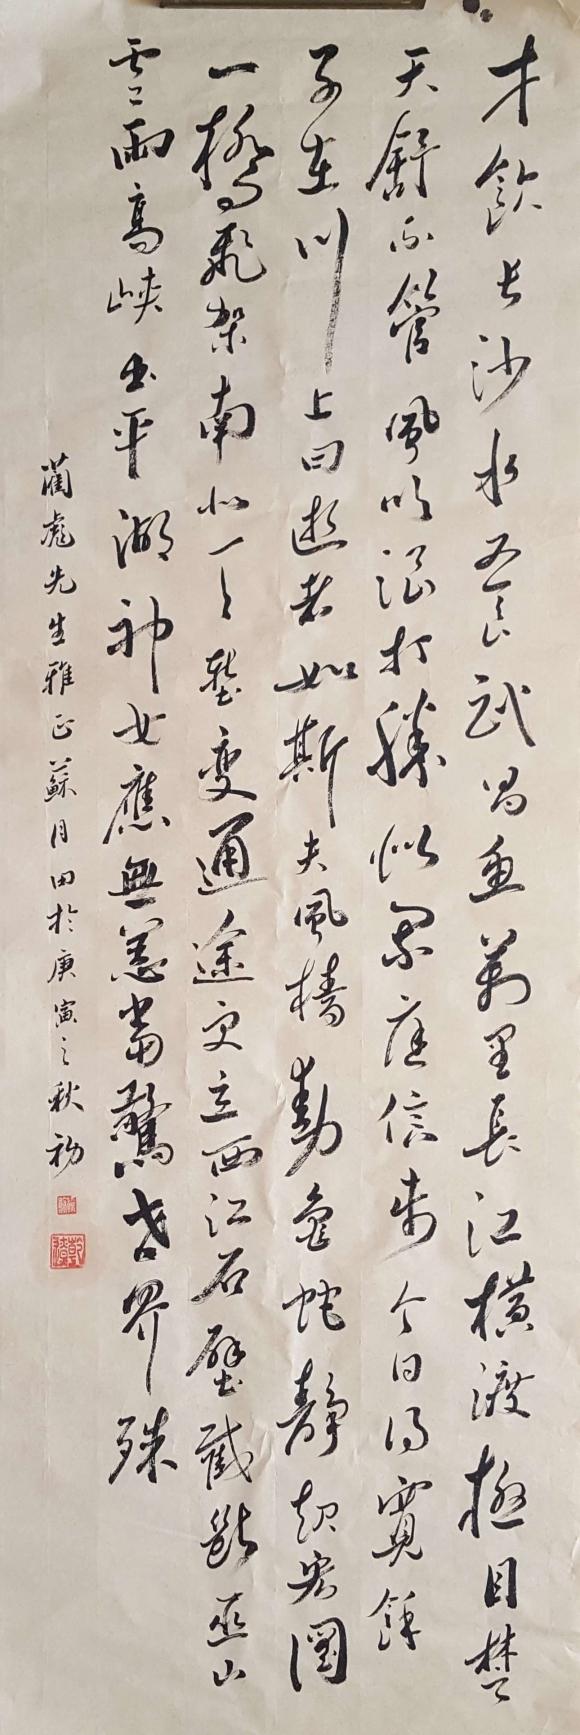 才飲長沙水又食武昌魚萬里長江橫渡極目楚
天舒不管風吹浪打勝似閑庭信步今日得寬餘
子在川上曰逝者如斯夫風檣動龜蛇靜起宏圖
一橋飛架南北一天塹變通途更立西江石壁截斷巫山
雲雨高峽出平湖神女應無恙當驚世界殊
蘭彪先生雅正蘇月田於庚寅之秋初